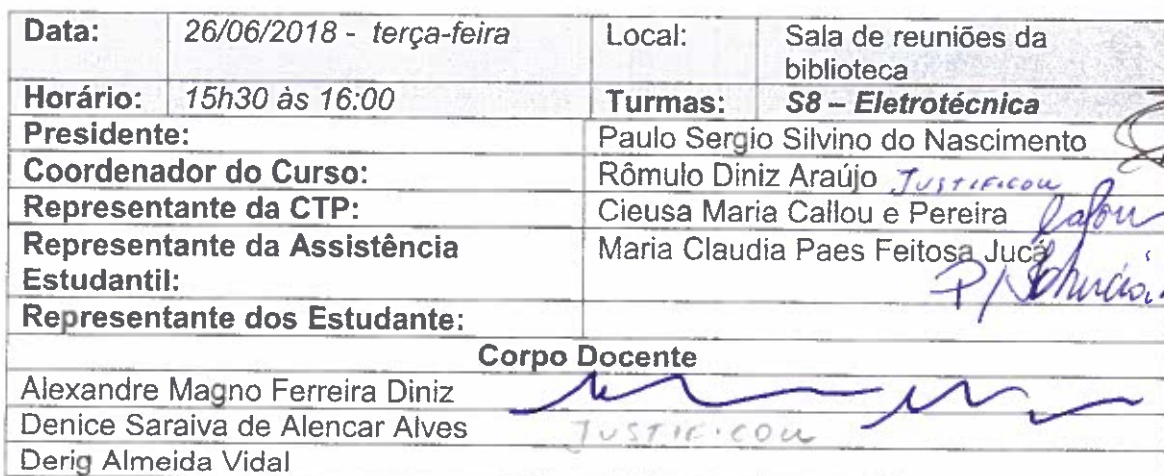 Data: 26/06/2018 - terça-feira Local: Sala de reuniões da
biblioteca
Horário: 15h30 às 16:00 Turmas: S8 – Eletrotécnica
Presidente: Paulo Sergio Silvino do Nascimento
Coordenador do Curso: Rômulo Diniz Araújo JUSTIFICOU
Representante da CTP: Cieusa Maria Callou e Pereira Callou
Representante da Assistência Maria Claudia Paes Feitosa Jucá
Estudantil: P/
Representante dos Estudante:
Corpo Docente
Alexandre Magno Ferreira Diniz
Denice Saraiva de Alencar Alves JUSTIFICOU
Derig Almeida Vidal